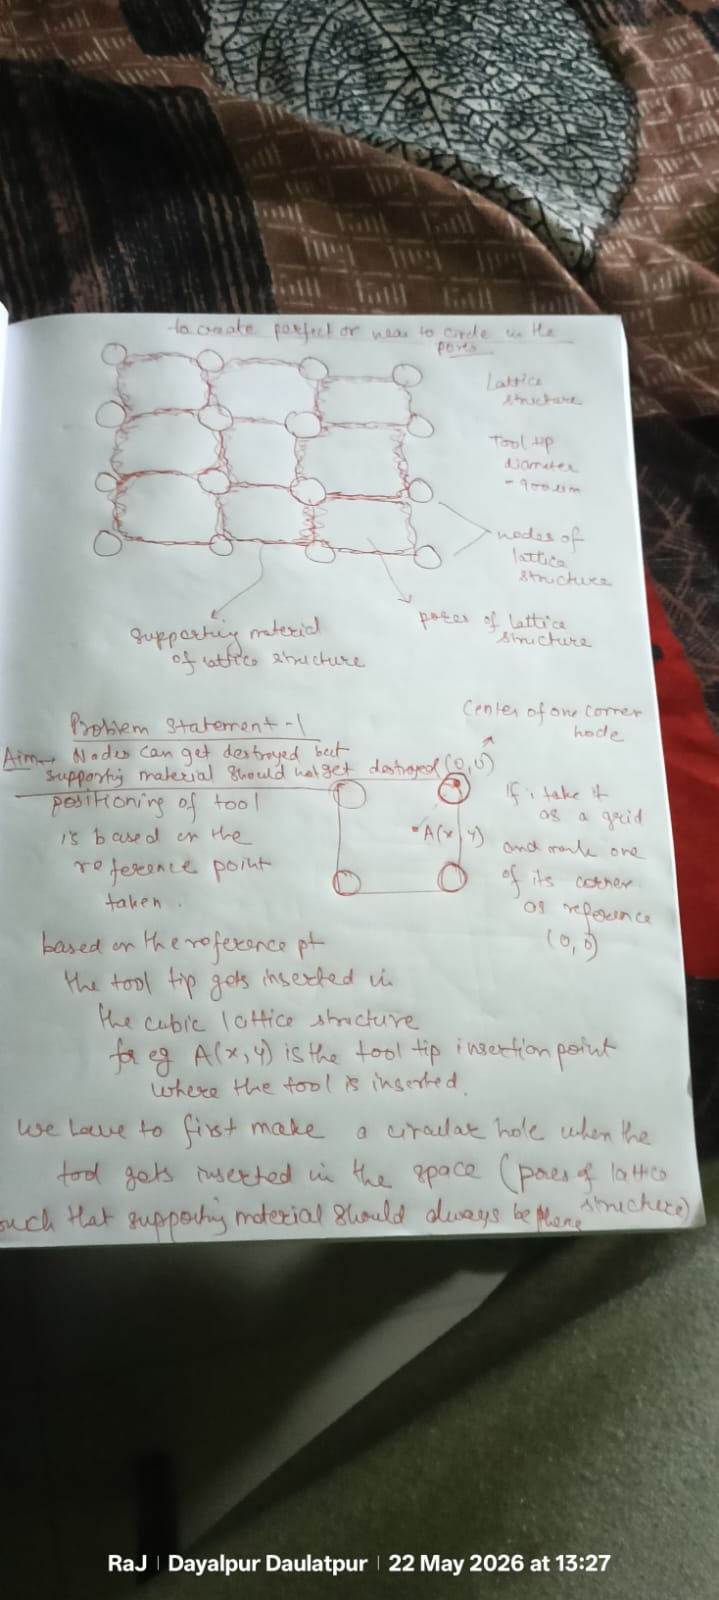 to create perfect or near to circle in the
pores
Lattice
structure
Tool tip
diameter
- 900um
nodes of
lattice
structure
supporting material
of lattice structure
pores of lattice
structure
Problem Statement - 1
Aim → Nodes can get destroyed but
supporting material should not get destroyed
Center of one corner
node
(0,0)
A(x, y)
positioning of tool
is based on the
reference point
taken.
If i take it
as a grid
and mark one
of its corner
as reference
(0,0)
based on the reference pt
the tool tip gets inserted in
the cubic lattice structure
for eg A(x,y) is the tool tip insertion point
where the tool is inserted.
we have to first make a circular hole when the
tool gets inserted in the space (pores of lattice
structure)
such that supporting material should always be
RaJ | Dayalpur Daulatpur | 22 May 2026 at 13:27